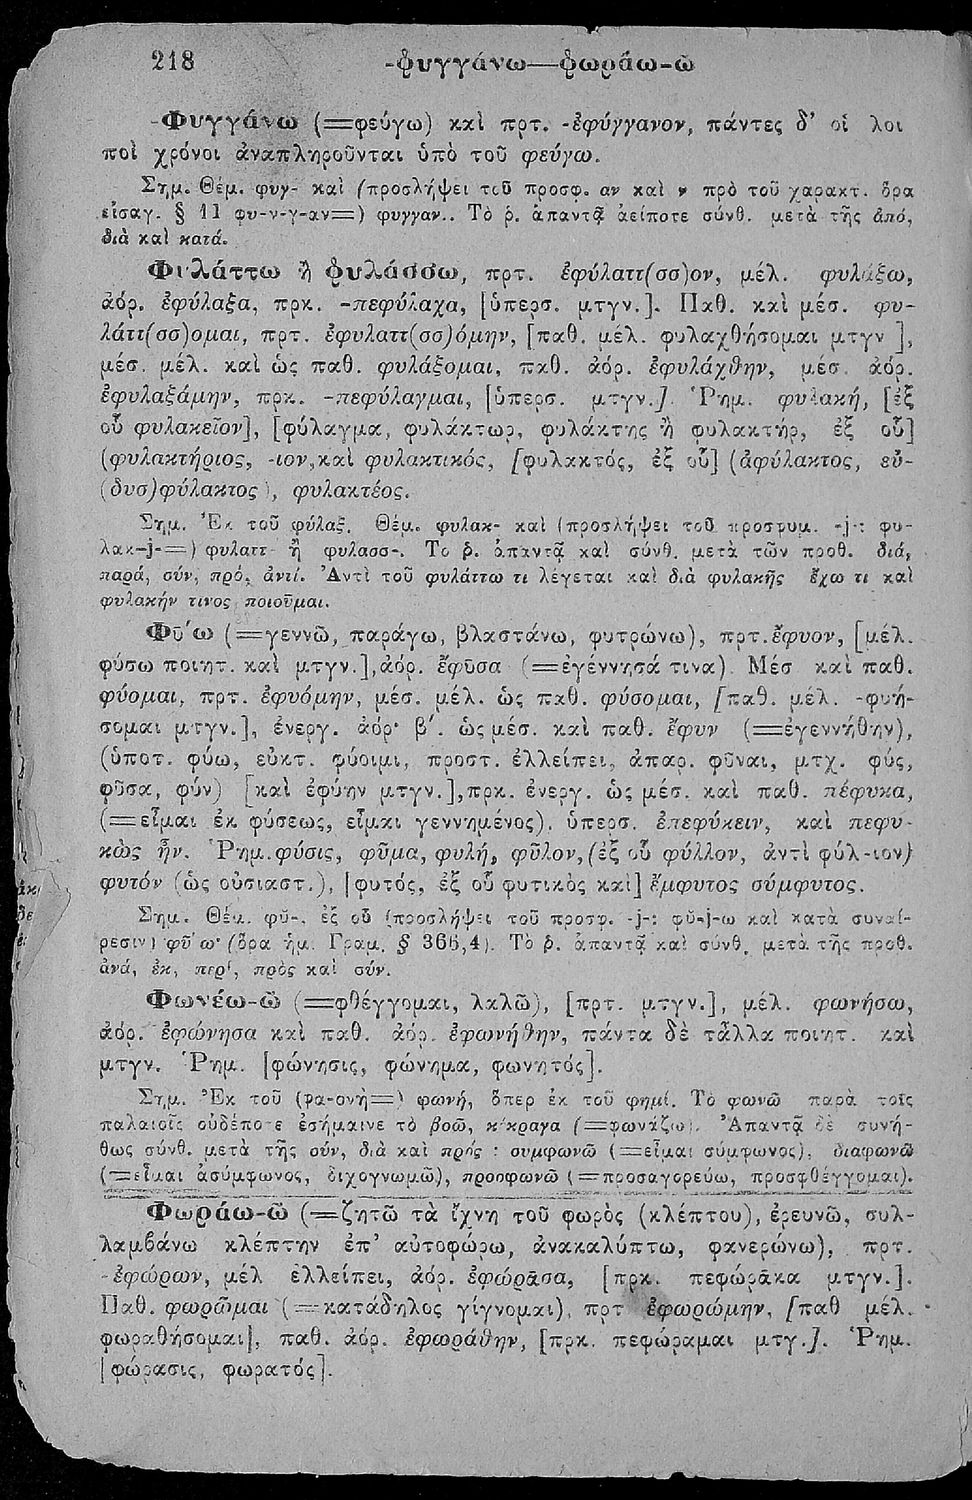 218 -φυγγάνω—φωράω-ῶ
-Φυγγάνω (=φεύγω) καὶ πρτ. -ἐφύγγανον, πάντες δ’ οἱ λοι
ποὶ χρόνοι ἀναπληροῦνται ὑπὸ τοῦ φεύγω.
Σημ. Θέμ. φυγ- καὶ (προσλήψει τοῦ προσφ. αν καὶ ν πρὸ τοῦ χαρακτ. ὅρα
εἰσαγ. § 11 φυ-ν-γ-αν=) φυγγαν.. Τὸ ῥ. ἀπαντᾷ ἀείποτε σύνθ. μετὰ τῆς ἀπό,
διὰ καὶ κατά.
Φυλάττω ἢ φυλάσσω, πρτ. ἐφύλαττ(σσ)ον, μέλ. φυλάξω,
ἀόρ. ἐφύλαξα, πρκ. -πεφύλαχα, [ὑπερσ. μτγν.]. Παθ. καὶ μέσ. φυ-
λάττ(σσ)ομαι, πρτ. ἐφυλαττ(σσ)όμην, [παθ. μέλ. φυλαχθήσομαι μτγν ],
μέσ. μέλ. καὶ ὡς παθ. φυλάξομαι, παθ. ἀόρ. ἐφυλάχθην, μέσ. ἀόρ.
ἐφυλαξάμην, πρκ. -πεφύλαγμαι, [ὑπερσ. μτγν.]. Ῥημ. φυλακή, [ἐξ
οὗ φυλακεῖον], [φύλαγμα, φυλάκτωρ, φυλάκτης ἢ φυλακτήρ, ἐξ οὗ]
(φυλακτήριος, -ιον, καὶ φυλακτικός, [φυλακτός, ἐξ οὗ] (ἀφύλακτος, εὐ-
(δυσ)φύλακτος), φυλακτέος.
Σημ. Ἐκ τοῦ φύλαξ. Θέμ. φυλακ- καὶ (προσλήψει τοῦ προσφυμ. -j-: φυ-
λακ-j-=) φυλαττ- ἢ φυλασσ-. Το ῥ. ἀπαντᾷ καὶ σύνθ. μετὰ τῶν προθ. διά,
παρά, σύν, πρό, ἀντί. Ἀντὶ τοῦ φυλάττω τι λέγεται καὶ διὰ φυλακῆς ἔχω τι καὶ
φυλακήν τινος ποιοῦμαι.
Φύω (=γεννῶ, παράγω, βλαστάνω, φυτρώνω), πρτ. ἔφυον, [μέλ.
φύσω ποιητ. καὶ μτγν.], ἀόρ. ἔφυσα (=ἐγέννησά τινα). Μέσ καὶ παθ.
φύομαι, πρτ. ἐφυόμην, μέσ. μέλ. ὡς παθ. φύσομαι, [παθ. μέλ. -φυή-
σομαι μτγν.], ἐνεργ. ἀόρ· β΄. ὡς μέσ. καὶ παθ. ἔφυν (=ἐγεννήθην),
(ὑποτ. φύω, εὐκτ. φύοιμι, προστ. ἐλλείπει, ἀπαρ. φῦναι, μτχ. φύς,
φῦσα, φύν) [καὶ ἐφύην μτγν.], πρκ. ἐνεργ. ὡς μέσ. καὶ παθ. πέφυκα,
(=εἶμαι ἐκ φύσεως, εἶμαι γεννημένος), ὑπερσ. ἐπεφύκειν, καὶ πεφυ-
κὼς ἦν. Ῥημ. φύσις, φῦμα, φυλή, φῦλον, (ἐξ οὗ φύλλον, ἀντὶ φύλ-ιον)
φυτόν (ὡς οὐσιαστ.), [φυτός, ἐξ οὗ φυτικὸς καὶ] ἔμφυτος σύμφυτος.
Σημ. Θέμ. φῡ-, ἐξ οὗ (προσλήψει τοῦ προσφ. -j-: φῡ-j-ω καὶ κατὰ συναί-
ρεσιν) φύω· (ὅρα ἡμ. Γραμ. § 366,4). Τὸ ῥ. ἀπαντᾷ καὶ σύνθ. μετὰ τῆς προθ.
ἀνά, ἐκ, περί, πρὸς καὶ σύν.
Φωνέω-ῶ (=φθέγγομαι, λαλῶ), [πρτ. μτγν.], μέλ. φωνήσω,
ἀόρ. ἐφώνησα καὶ παθ. ἀόρ. ἐφωνήθην, πάντα δὲ τἆλλα ποιητ. καὶ
μτγν. Ῥημ. [φώνησις, φώνημα, φωνητός].
Σημ. Ἐκ τοῦ (φα-ονὴ=) φωνή, ὅπερ ἐκ τοῦ φημί. Τὸ φωνῶ παρὰ τοῖς
παλαιοῖς οὐδέποτε ἐσήμαινε τὸ βοῶ, κέκραγα (=φωνάζω). Ἀπαντᾷ δὲ συνή-
θως σύνθ. μετὰ τῆς σύν, διὰ καὶ πρός : συμφωνῶ (=εἶμαι σύμφωνος), διαφωνῶ
(=εἶμαι ἀσύμφωνος, διχογνωμῶ), προσφωνῶ (=προσαγορεύω, προσφθέγγομαι).
Φωράω-ῶ (=ζητῶ τὰ ἴχνη τοῦ φωρὸς (κλέπτου), ἐρευνῶ, συλ-
λαμβάνω κλέπτην ἐπ’ αὐτοφώρω, ἀνακαλύπτω, φανερώνω), πρτ.
-ἐφώρων, μέλ ἐλλείπει, ἀόρ. ἐφώρᾱσα, [πρκ. πεφώρᾱκα μτγν.].
Παθ. φωρῶμαι (=κατάδηλος γίγνομαι), πρτ ἐφωρώμην, [παθ μέλ.
φωραθήσομαι], παθ. ἀόρ. ἐφωράθην, [πρκ. πεφώραμαι μτγ.]. Ῥημ.
[φώρασις, φωρατός].